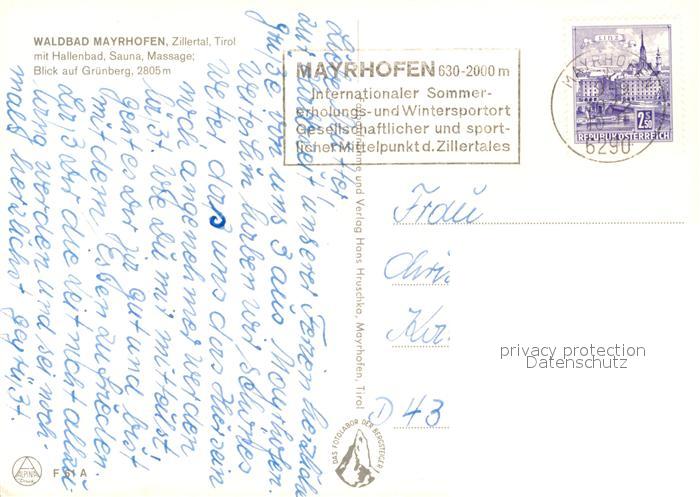 WALDBAD MAYRHOFEN, Zillertal, Tirol
mit Hallenbad, Sauna, Massage;
Blick auf Grünberg, 2805 m
MAYRHOFEN 630-2000 m
Internationaler Sommer-
erholungs- und Wintersportort
Gesellschaftlicher und sport-
licher Mittelpunkt d. Zillertales
LINZ
2.50
REPUBLIK ÖSTERREICH
MAYRHO
6290
auf unserer Ferien herzlich
grüße von uns 3 aus Mayrhofen.
weiterhin haben wir schönes
Wetter, das uns das Hiersein
noch angenehmer werden
läßt. Wie Du mir mitteilst,
geht es Dir ja gut und bist
mit dem Essen zufrieden.
Dir die Zeit nicht allzu
lang werden und sei noch-
mals herzlichst gegrüßt.
und Verlag Hans Hruschka, Mayrhofen, Tirol
Frau
Chri
Kir
D 43
privacy protection
Datenschutz
DAS FOTOLABOR DER BERGSTEIGER
ALPINA
F 61 A